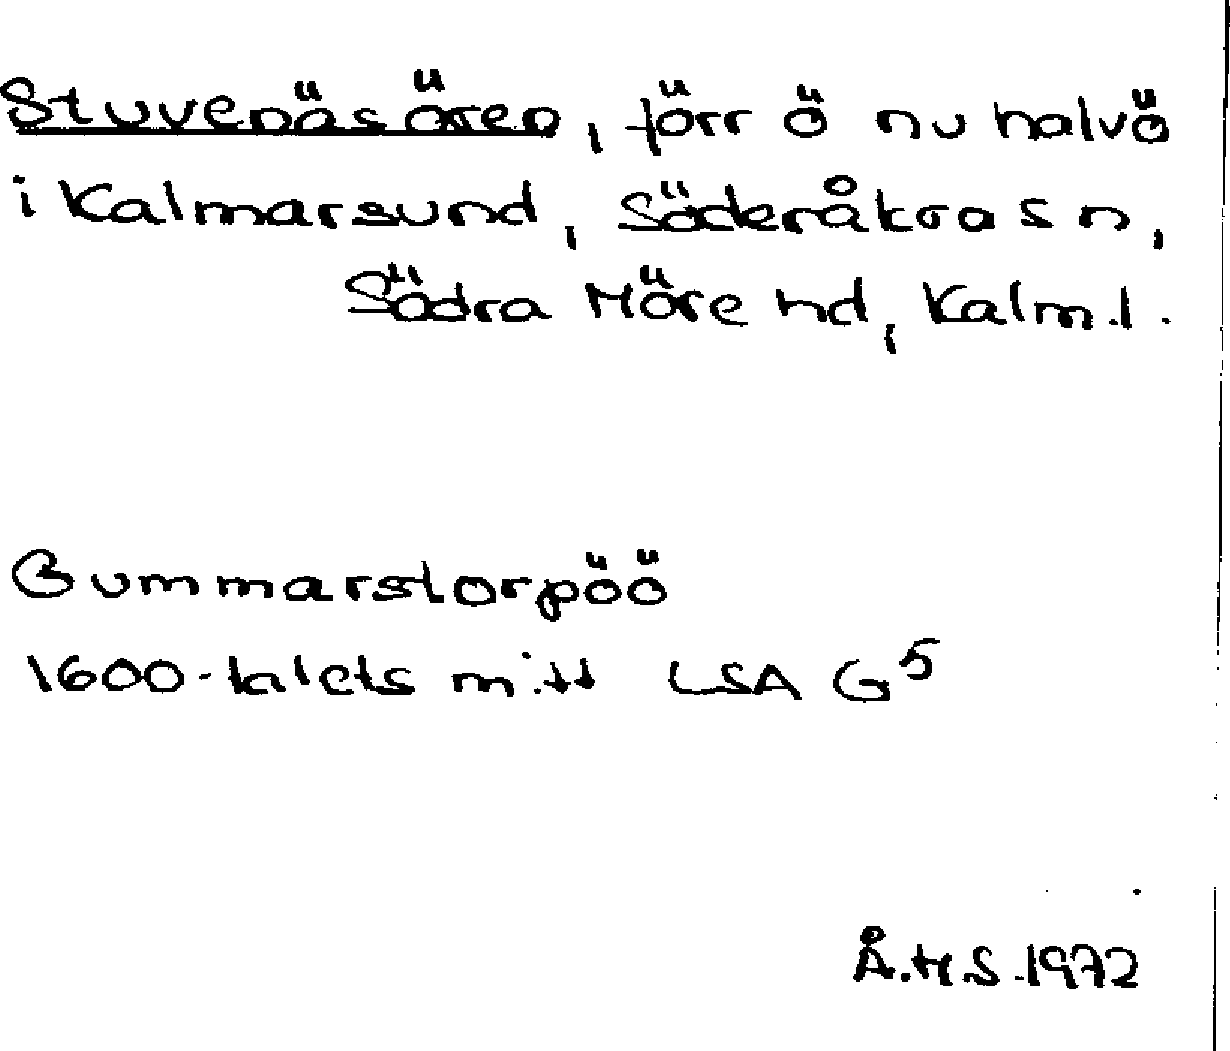 Stuvenäsören, förr ö nu halvö
i Kalmarsund, Söderåkra sn,
Södra Möre hd, Kalm.l.
Gummarstorpöö
1600-talets mitt LSA G5
Å.H.S. 1972